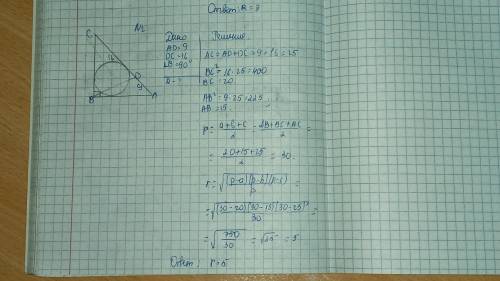 Ответ: R = 8
N2
C
16
D
9
B
A
Дано
AD = 9
DC = 16
∠B = 90°
Решение
AC = AD + DC = 9 + 16 = 25
BC² = 16 · 25 = 400
BC = 20
AB² = 9 · 25 = 225
AB = 15
p = a + b + c / 2 = AB + BC + AC / 2 =
= 20 + 15 + 25 / 2 = 30
r = √(p-a)(p-b)(p-c) / p =
= √(30-20)(30-15)(30-25) / 30 =
= √750 / 30 = √25 = 5
Ответ: r = 5